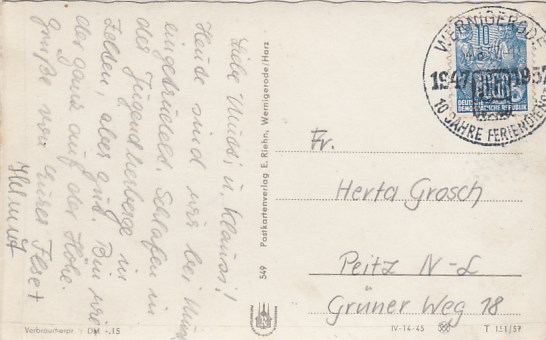 Liebe Mussi u. Klaussi!
Heute sind wir bei
eingetrudelt. Schlafen in
der Jugendherberge in
Zelten, aber gut. Bin wie
der ganz auf der Höhe.
Grüße von
Helmut
Verbraucherpr. DM -.15
549 Postkartenverlag E. Riehn, Wernigerode/Harz
WERNIGERODE
1947 1957
10 JAHRE FERIENDIENST
10
DEUTSCHE
DEMOKRATISCHE REPUBLIK
Fr.
Herta Grosch
Peitz N-L
Grüner Weg 18
IV-14-45
T 151/57